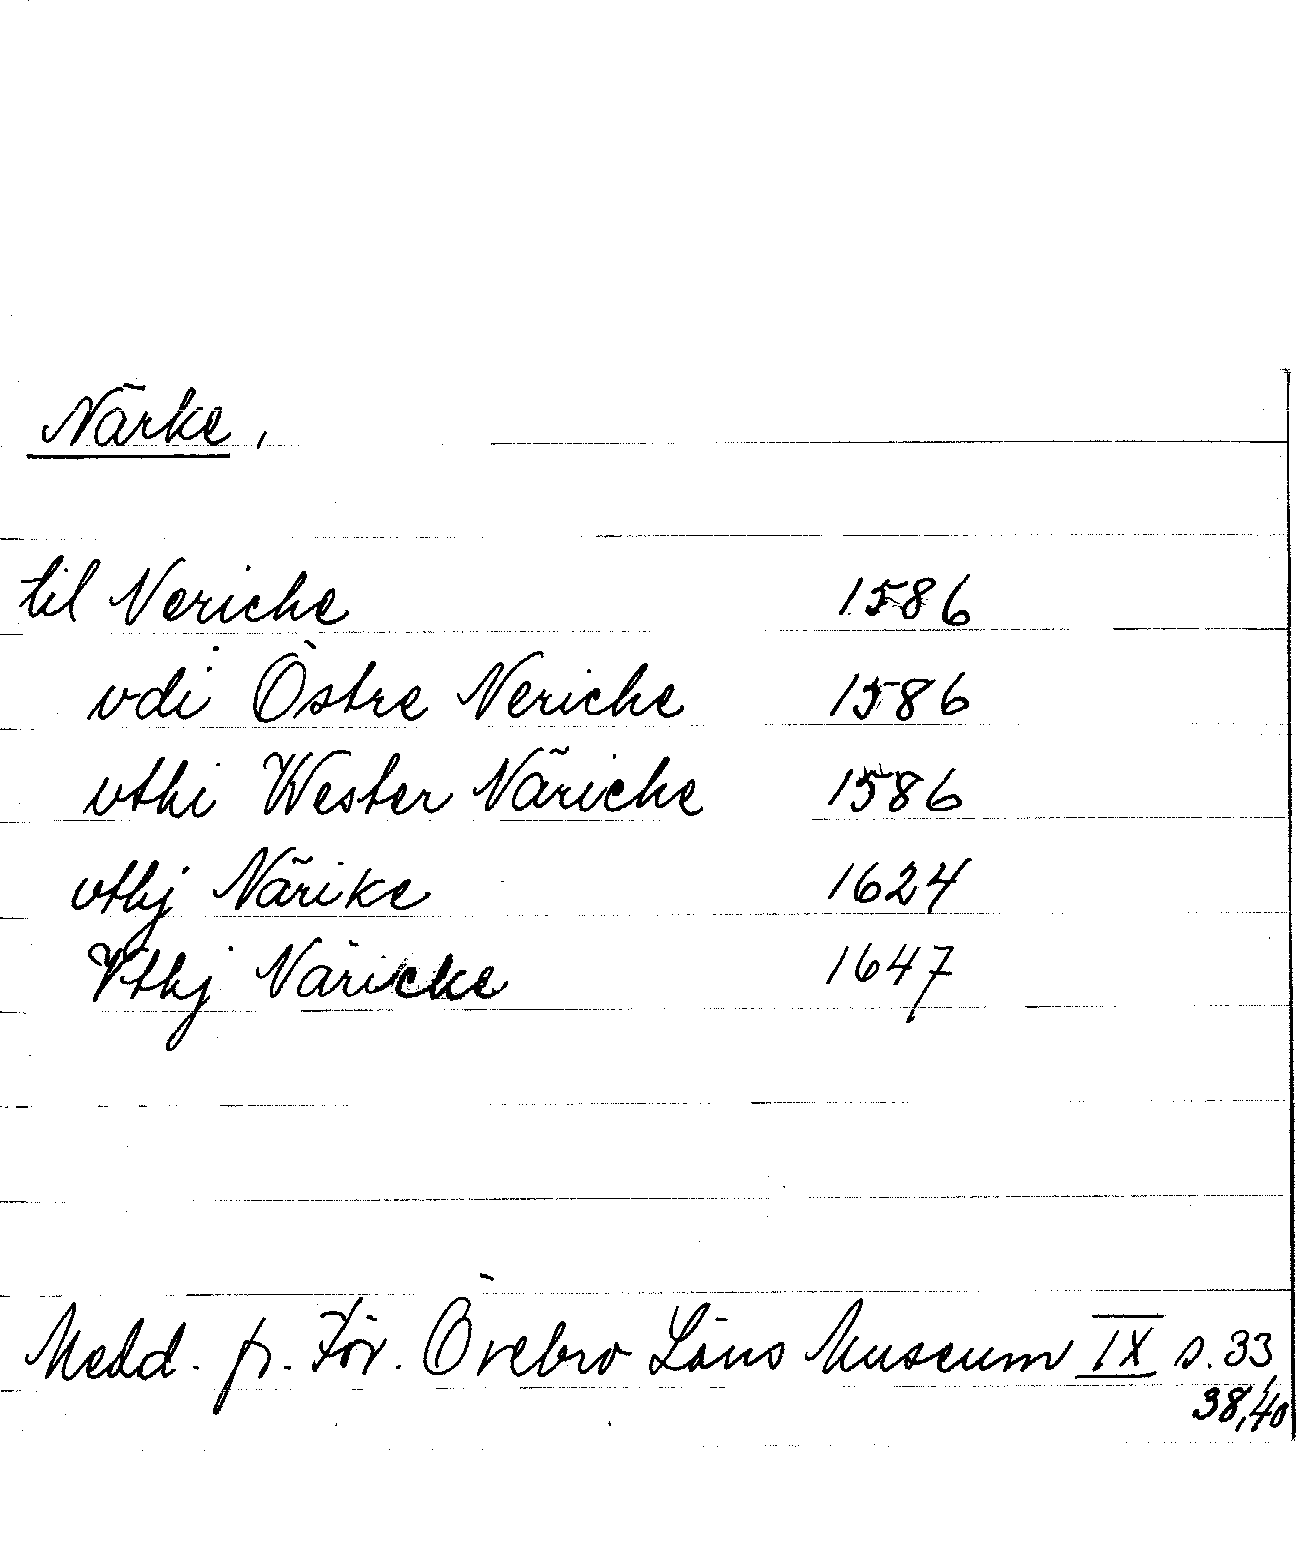 Närke,
til Neriche
vdi Östre Neriche
vthi Wester Näriche
vthj Närike
Vthj Näricke
Medd. fr. För. Örebro Läns Museum IX s. 33,
38, 40
1586
1586
1586
1624
1647